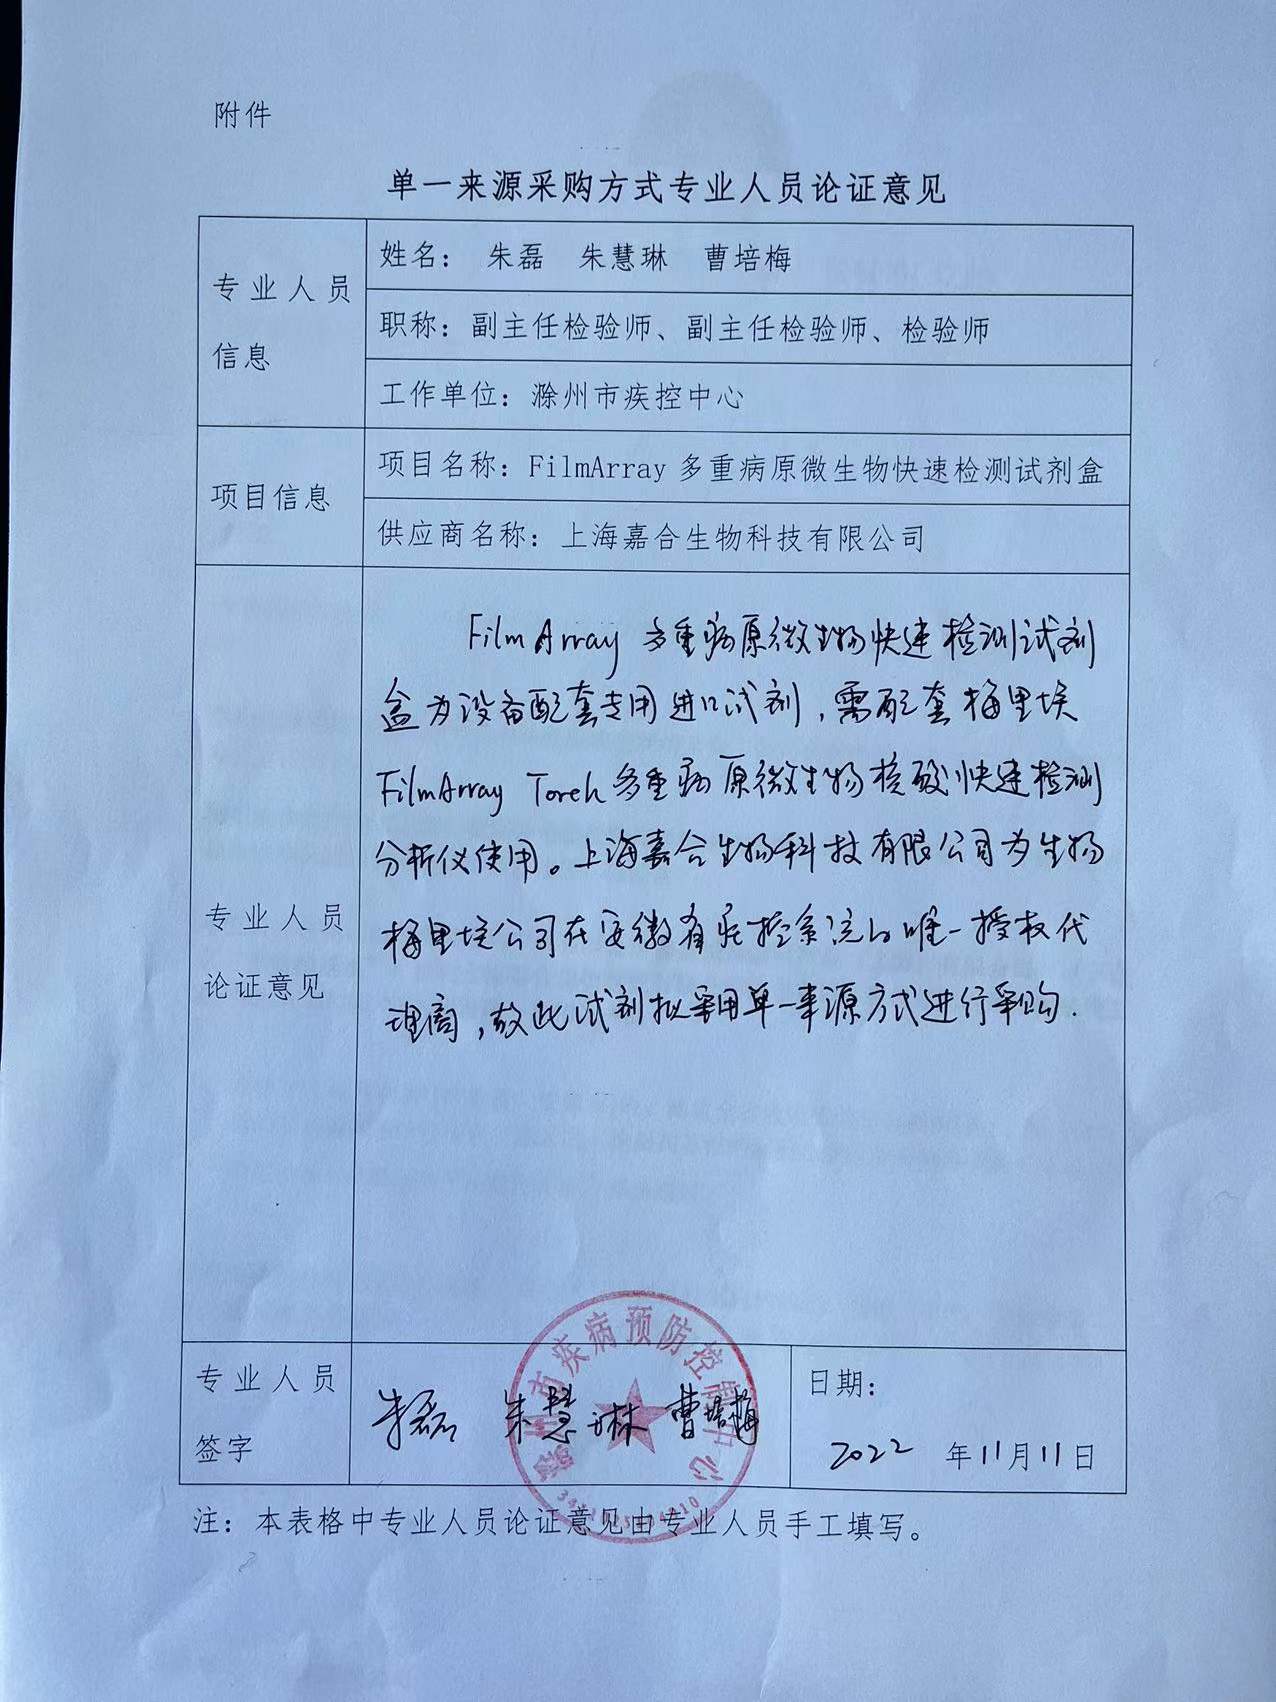 附件
单一来源采购方式专业人员论证意见
专业人员
信息
姓名： 朱磊 朱慧琳 曹培梅
职称：副主任检验师、副主任检验师、检验师
工作单位：滁州市疾控中心
项目信息
项目名称：FilmArray 多重病原微生物快速检测试剂盒
供应商名称：上海嘉合生物科技有限公司
专业人员
论证意见
FilmArray 多重病原微生物快速检测试剂
盒为设备配套专用进口试剂，需配套梅里埃
FilmArray Torch 多重病原微生物核酸快速检测
分析仪使用。上海嘉合生物科技有限公司为生物
梅里埃公司在安徽省疾控系统的唯一授权代
理商，故此试剂拟采用单一来源方式进行采购.
专业人员
签字
朱磊 朱慧琳 曹培梅
滁州市疾病预防控制中心
日期：
2022 年11月11日
注：本表格中专业人员论证意见由专业人员手工填写。